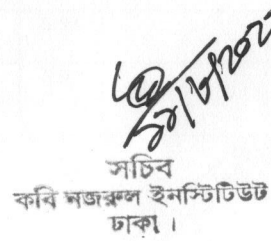 সচিব
কবি নজরুল ইনস্টিটিউট
ঢাকা ।